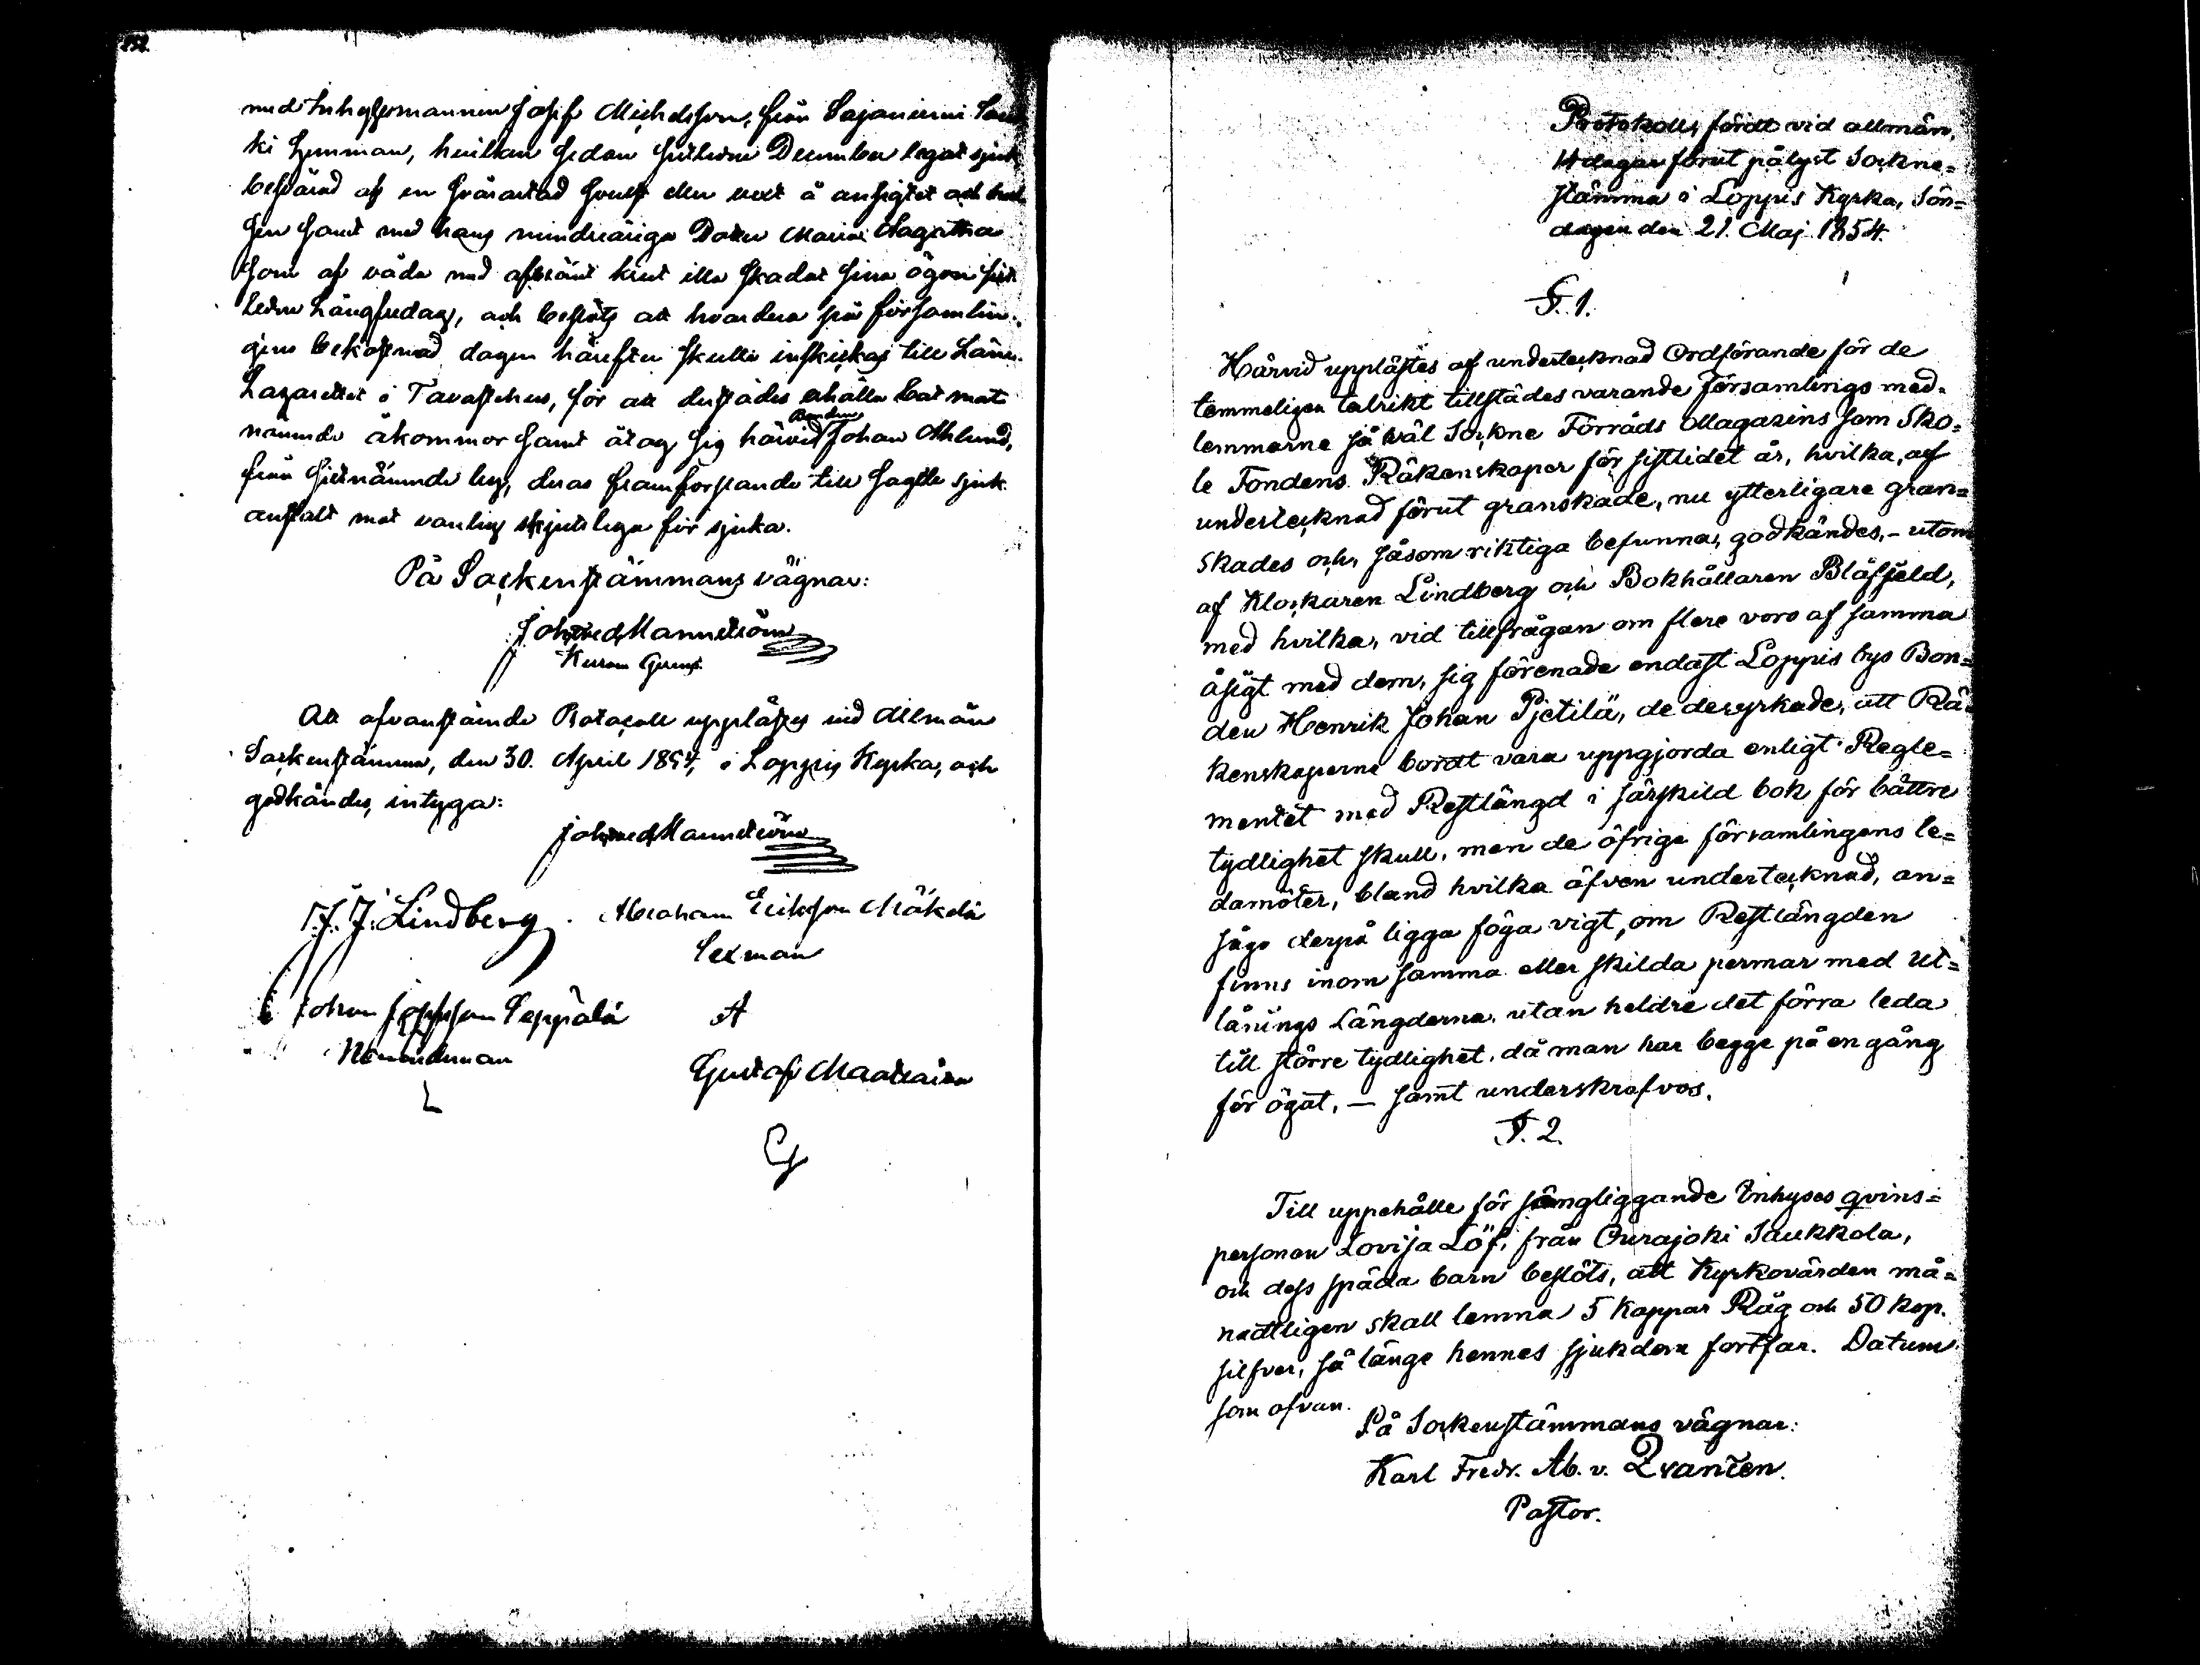 med Inhysesmannen Josef Michelsson, från Sajaniemi
ki hemman, hvilken sedan sistledne December legat sjuk
besvärad af en svårartad svulst eller vext å ansigtet och
sen samt med hans minderåriga Dotter Maria Agatha
som af våda med afbränt krut illa skadat sina ögon sist
ledne Långfredag, och beslöts att hvardera på församlin-
gens bekostnad dagen härefter skulle inskickas till Läns-
Lazarettet i Tavastehus, för att derstädes erhålla bot mot
nämnde åkommor samt åtog sig härvid Bonden Johan Ahlund,
från sistnämnde by, deras framforslande till sagde sjuk-
anstalt mot vanlig skjutslega för sjuka.
På Sockenstämmans vägnar:
Joh Fred Mannström
Att ofvanstående Protocoll upplästes vid Allmän
Sockenstämma, den 30. April 1854, i Loppis Kyrka, och
godkändes, intyga:
Joh Fred Mannström
J. J. Lindberg. Abraham Eriksson Mäkelä
Sexman
Johan Josefsson Seppälä A
Nämndeman Gustaf
L
G
Protokoll, fördt vid allmän,
14 dagar förut pålyst Sockne-
stämma i Loppis Kyrka, Sön-
dagen den 21. Maj 1854.
§. 1.
Härvid upplästes af undertecknad Ordförande för de
temmeligen talrikt tillstädes varande församlings med-
lemmarne så wäl Sockne Förråds Magazins som Sko-
le Fondens Räkenskaper för sistlidet år, hvilka, af
undertecknad förut granskade, nu ytterligare gran-
skades och, såsom riktiga befunna, godkändes, - utom
af Klockaren Lindberg och Bokhållaren Blåfjeld,
med hvilka, vid tillfrågan om flere voro af samma
åsigt med dem, sig förenade endast Loppis bys Bon-
den Henrik Johan Pjetilä, de der yrkade, att Rä-
kenskaperne bordt vara uppgjorda enligt Regle-
mentet med Restlängd i särskild bok för bättre
tydlighet skull, men de öfriga församlingens le-
damöter, bland hvilka äfven undertecknad, an-
sågo derpå ligga föga vigt, om Restlängden
finns inom samma eller skilda permar med Ut-
lånings Längderna, utan heldre det förra leda
till större tydlighet, då man har begge på en gång
för ögat, — samt underskrefvos.
§. 2.
Till uppehälle för sängliggande Inhyses qvins-
personen Lovisa Löf, från Ourajoki Saukkola,
och dess späda barn beslöts, att Kyrkovärden må-
nadtligen skall lemna 5 Kappar Råg och 50 kop.
silfver, så länge hennes sjukdom fortfar. Datum
som ofvan.
På Sockenstämmans vägnar:
Karl Fredr. Ab. v. Qvanten.
Pastor.